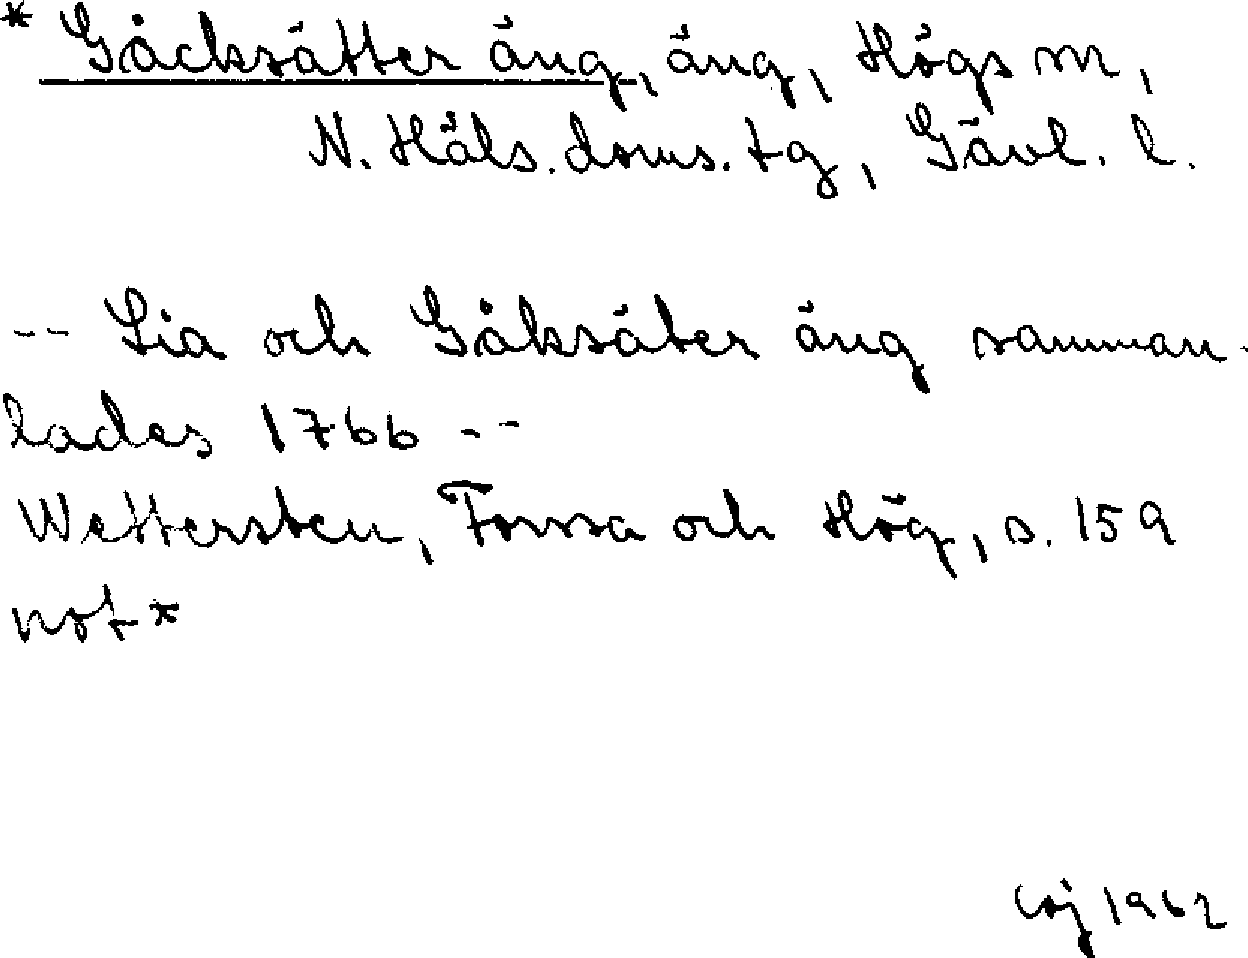 * Gåcksätter äng, äng, Högs sn,
N. Häls. doms. tg, Gävl. l.
-- Lia och Gåksäter äng samman-
lades 1766 --
Wettersten, Forssa och Hög, s. 159
not*
1962